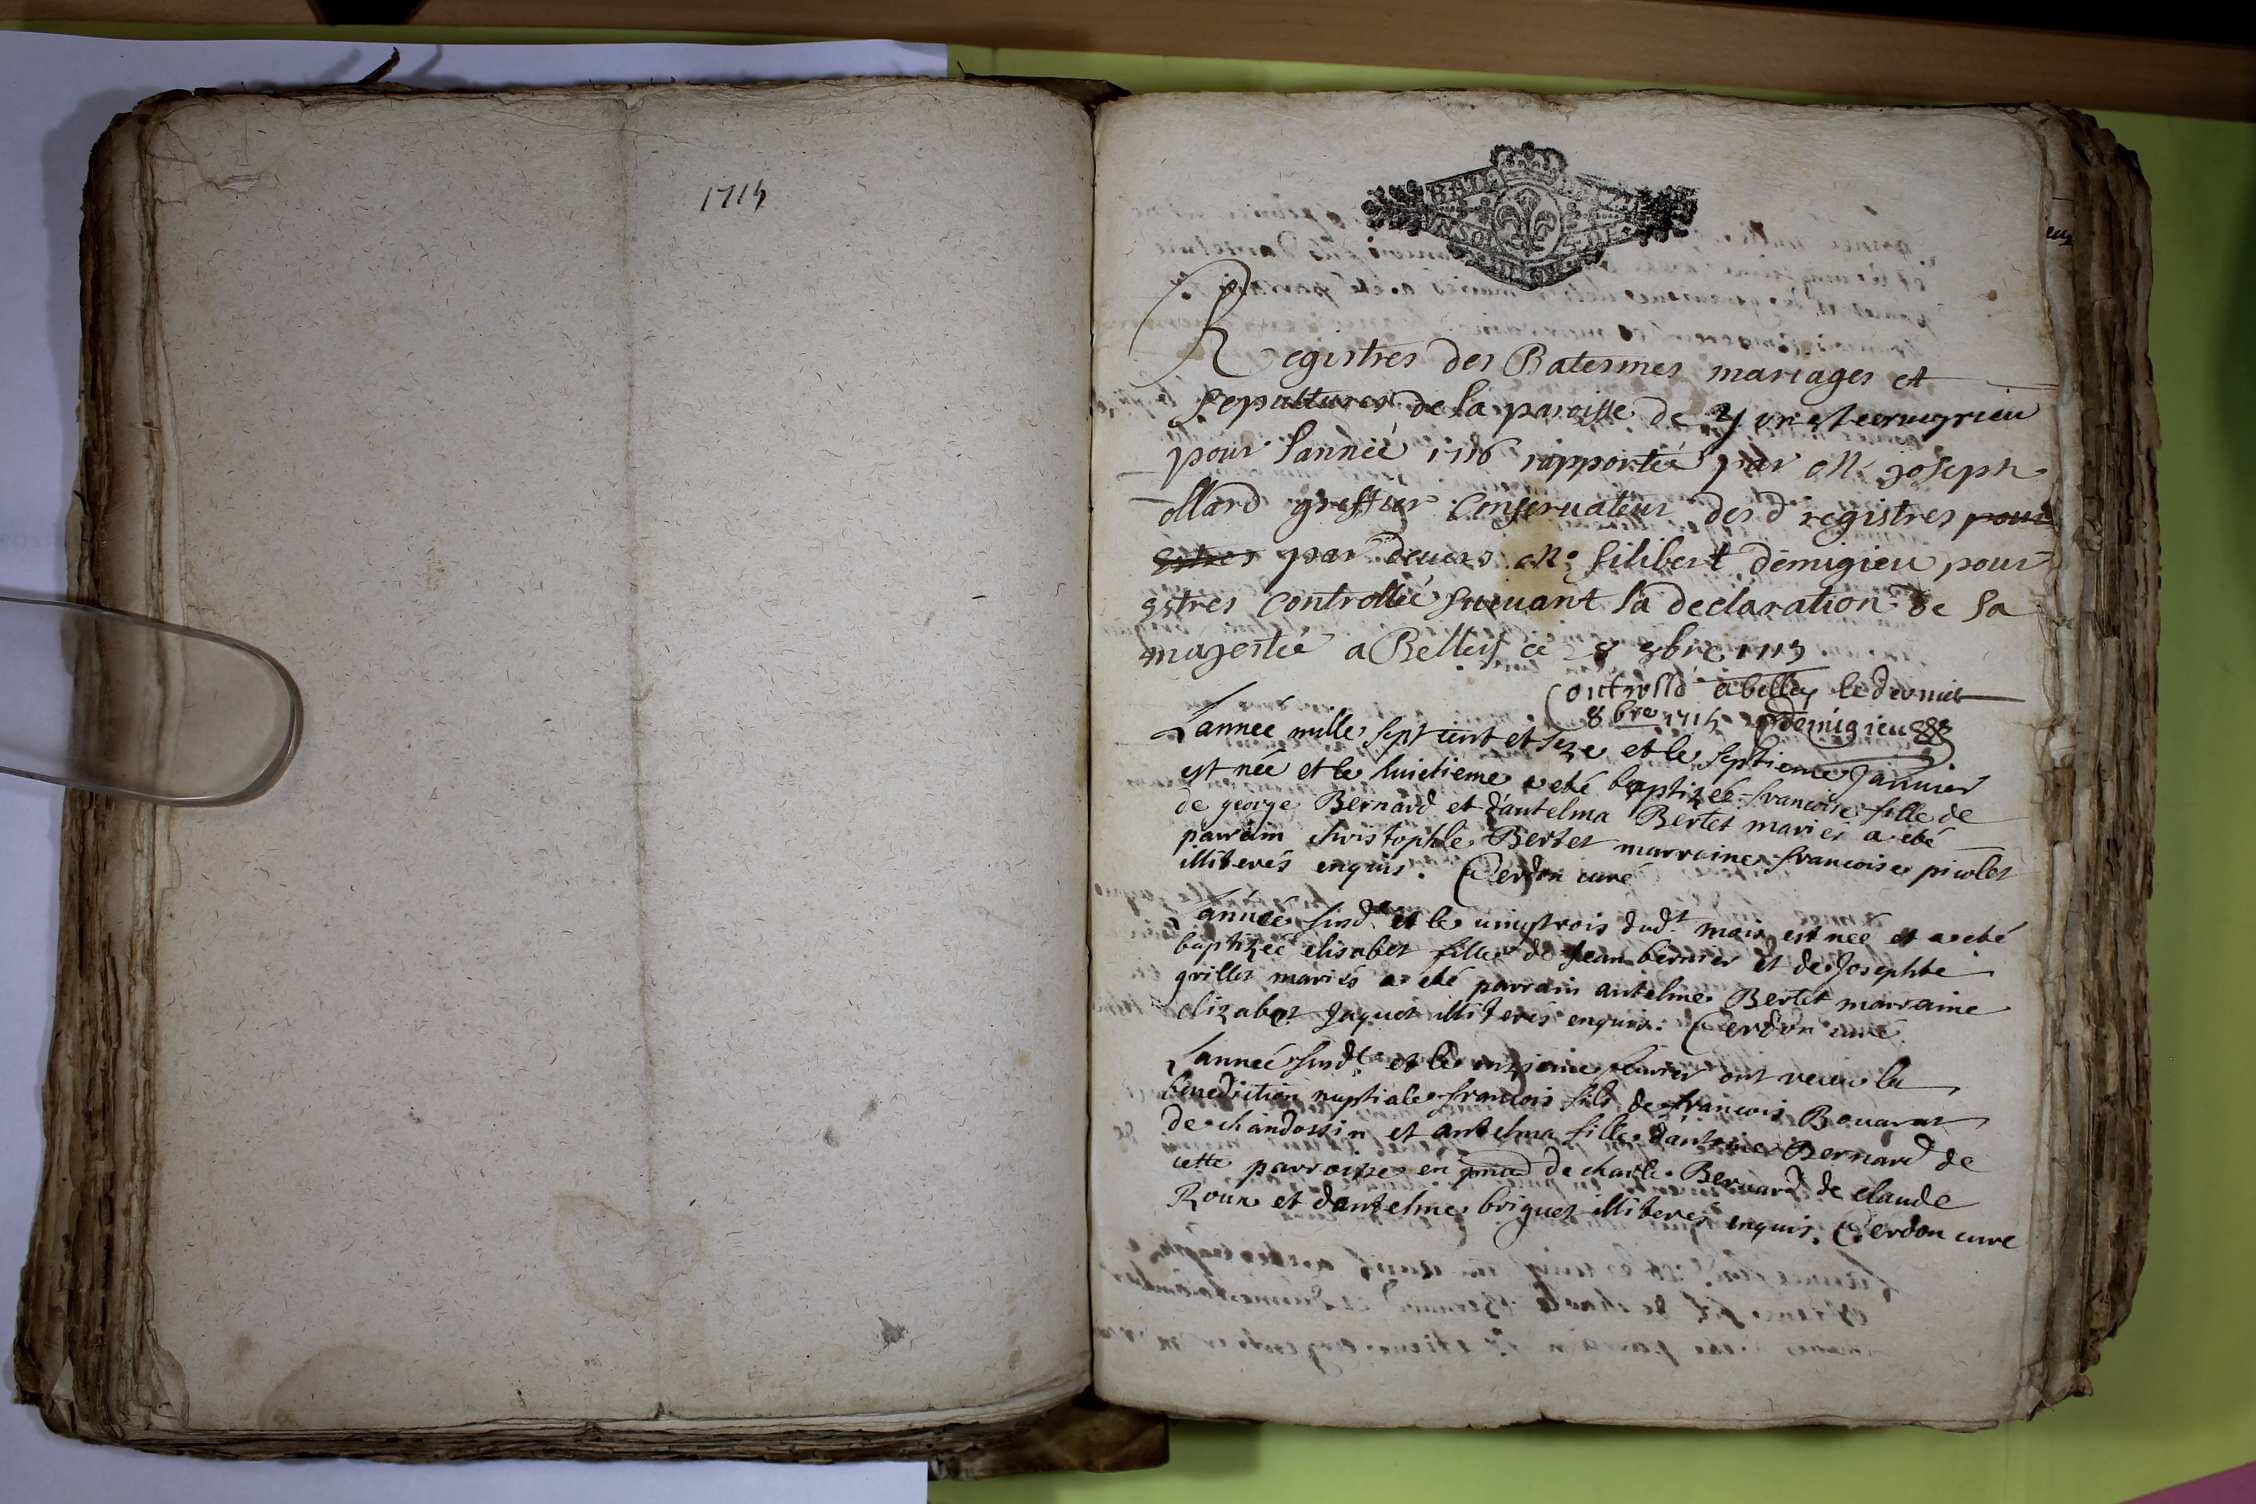 1715
Registres des Batesmes mariages et
sepultures de la paroisse de
pour l'année 1716 rapportée par Mr joseph
ollard greffier Conservateur des d registres pour
estres par devers Me filibert demigieu pour
estres controllée suivant la declaration de sa
majestée a Belley ce 8 9bre 1715
Controllé a belley le dernier
8bre 1715 demigieu
L'année mille sept cent et seze et le septieme janvier
est née et le huictieme a eté baptizée francoise fille de
de george Bernard et d'antelma Bertet mariés a eté
parrain christophle Bertet marraine francoise picolet
illiterés enquis. Cerdon curé
L'année susd.e et le vingtrois dud.t mois est née et a eté
baptizée elisabet fille de Jean bernier et de Josephte
grillet mariés a eté parrain antelme Bertet marraine
elizabet Jaquet illiterés enquis. Cerdon curé
L'année susd.e et le onzieme fevrier ont receu la
benediction nuptiale francois fils de francois Bouarat
de chandossin et antelma fille d'antoine Bernard de
cette parroisse en de charle Bernard de claude
Roux et d'antelme briguet illiterés enquis. Cerdon curé